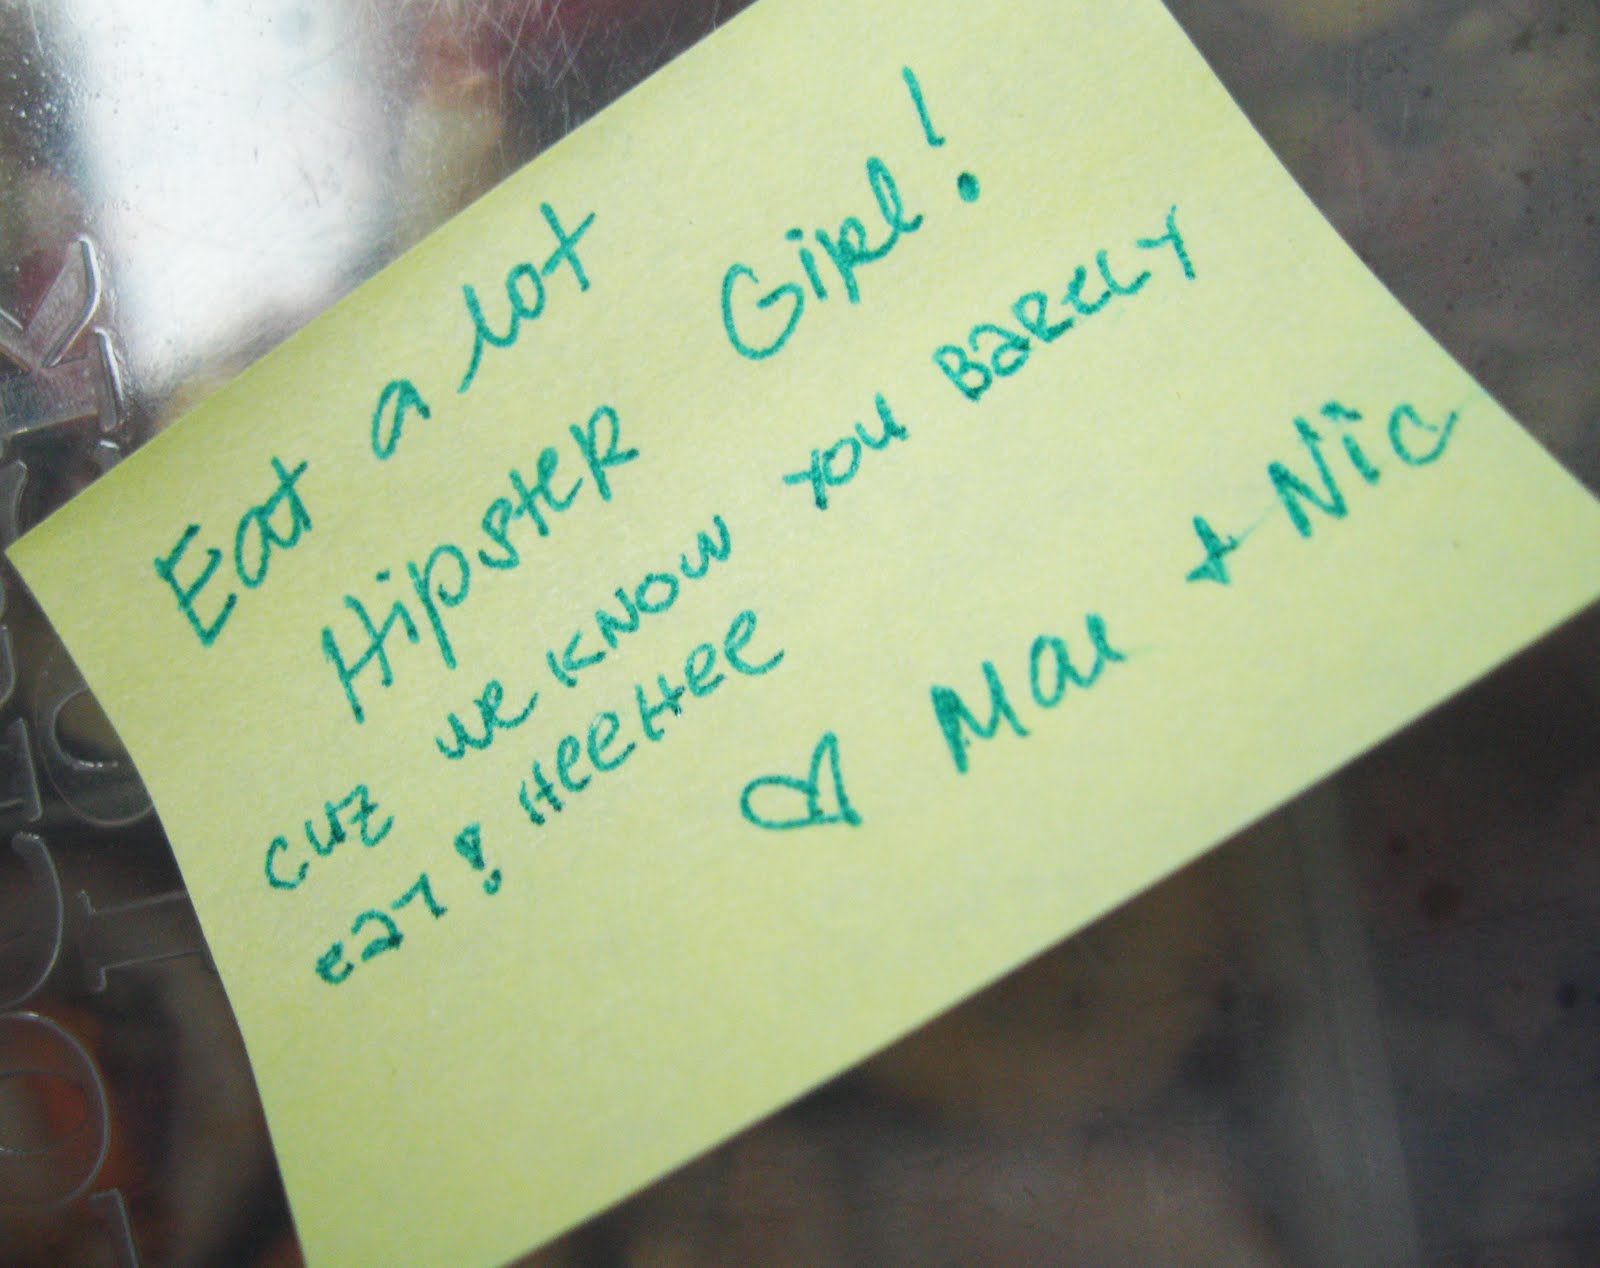 Eat a lot
Hipster Girl!
cuz we know you Barely
eat! HeeHee
♡ Mau + Nic